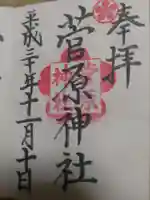 奉拝
菅原神社
平成三十年十一月十日